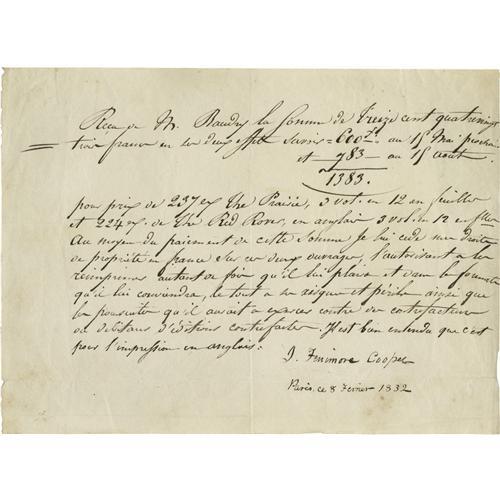 Recu de M. Baudry la somme de Treize cent quatrevingt
trois francs en ses deux effets savoir = 600 f. au 15 Mai prochain
et 783 — au 15 Aout.
1383.
pour prix de 237 ex The Prairie, 3 vol. en 12 en feuilles
et 224 ex. de The Red Rover, en anglais 3 vol. en 12 en flles
Au moyen du paiement de cette somme Je lui cede mes droits
de propriété en france sur ces deux ouvrages, l'autorisant a les
reimprimer autant de fois qu'il lui plaira et dans le format
qu'il lui conviendra, le tout a ses risques et perils ainsi que
les poursuites qu'il aurait a exercer contre des contrefacteurs
ou debitans d'éditions contrefaites. Il est bien entendu que c'est
pour l'impression en anglais.
J. Fenimore Cooper
Paris, ce 8 Fevrier 1832